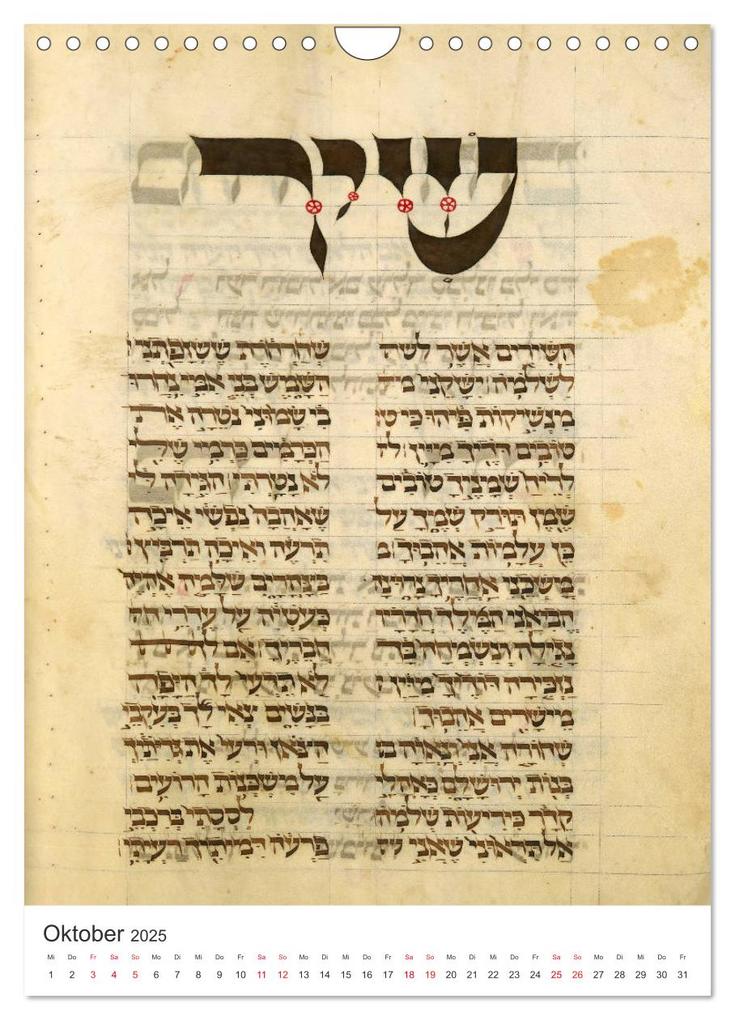 שיר
השירים אשר
לשלמה׃ ישקני
מנשיקות פיהו כי
טובים דדיך מיין׃
לריח שמניך טובים
שמן תורק שמך על
כן עלמות אהבוך׃
משכני אחריך נרוצה
הביאני המלך חדריו
נגילה ונשמחה בך
נזכירה דודיך מיין
מישרים אהבוך׃
שחורה אני ונאוה
בנות ירושלם כאהלי
קדר כיריעות שלמה׃
אל תראוני שאני
שחרחרת ששזפתני
השמש בני אמי נחרו
בי שמוני נטרה את
הכרמים כרמי שלי
לא נטרתי׃ הגידה לי
שאהבה נפשי איכה
תרעה איכה תרביץ
בצהרים שלמה אהיה
כעטיה על עדרי
חבריך׃ אם
לא תדעי לך היפה
בנשים צאי לך בעקבי
הצאן ורעי את גדיתיך
על משכנות הרועים׃
לססתי ברכבי
פרעה דמיתיך רעיתי׃
Oktober 2025
Mi Do Fr Sa So Mo Di Mi Do Fr Sa So Mo Di Mi Do Fr Sa So Mo Di Mi Do Fr Sa So Mo Di Mi Do Fr
1 2 3 4 5 6 7 8 9 10 11 12 13 14 15 16 17 18 19 20 21 22 23 24 25 26 27 28 29 30 31